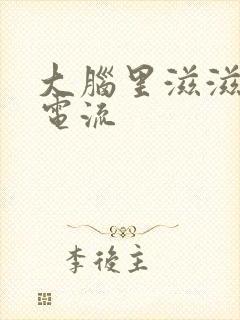 大腦里滋滋
電流
李後主